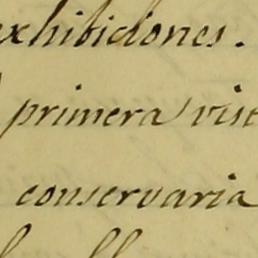 exhibiciones.
primera vist
conservaria